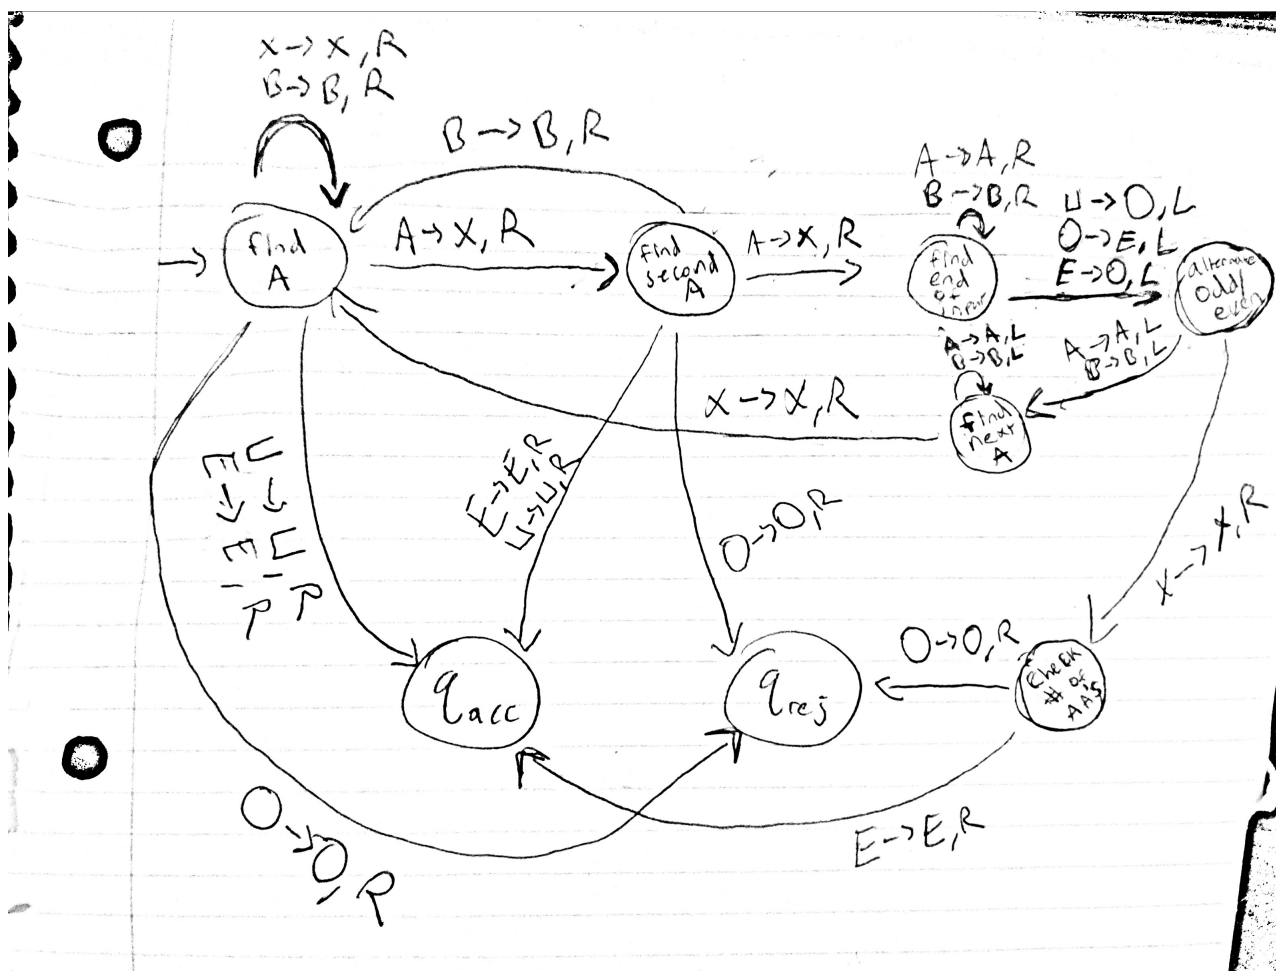 X→X,R
B→B,R
B→B,R
A→A,R
B→B,R
⊔→O,L
O→E,L
E→O,L
find
A
A→X,R
find
second
A
A→X,R
find
end
of
input
alternate
odd/
even
A→A,L
B→B,L
A→A,L
B→B,L
find
next
A
X→X,R
⊔→⊔,R
E→E,R
E→E,R
⊔→⊔,R
O→O,R
X→X,R
qacc
qrej
O→O,R
check
# of
AA's
O→O,R
E→E,R